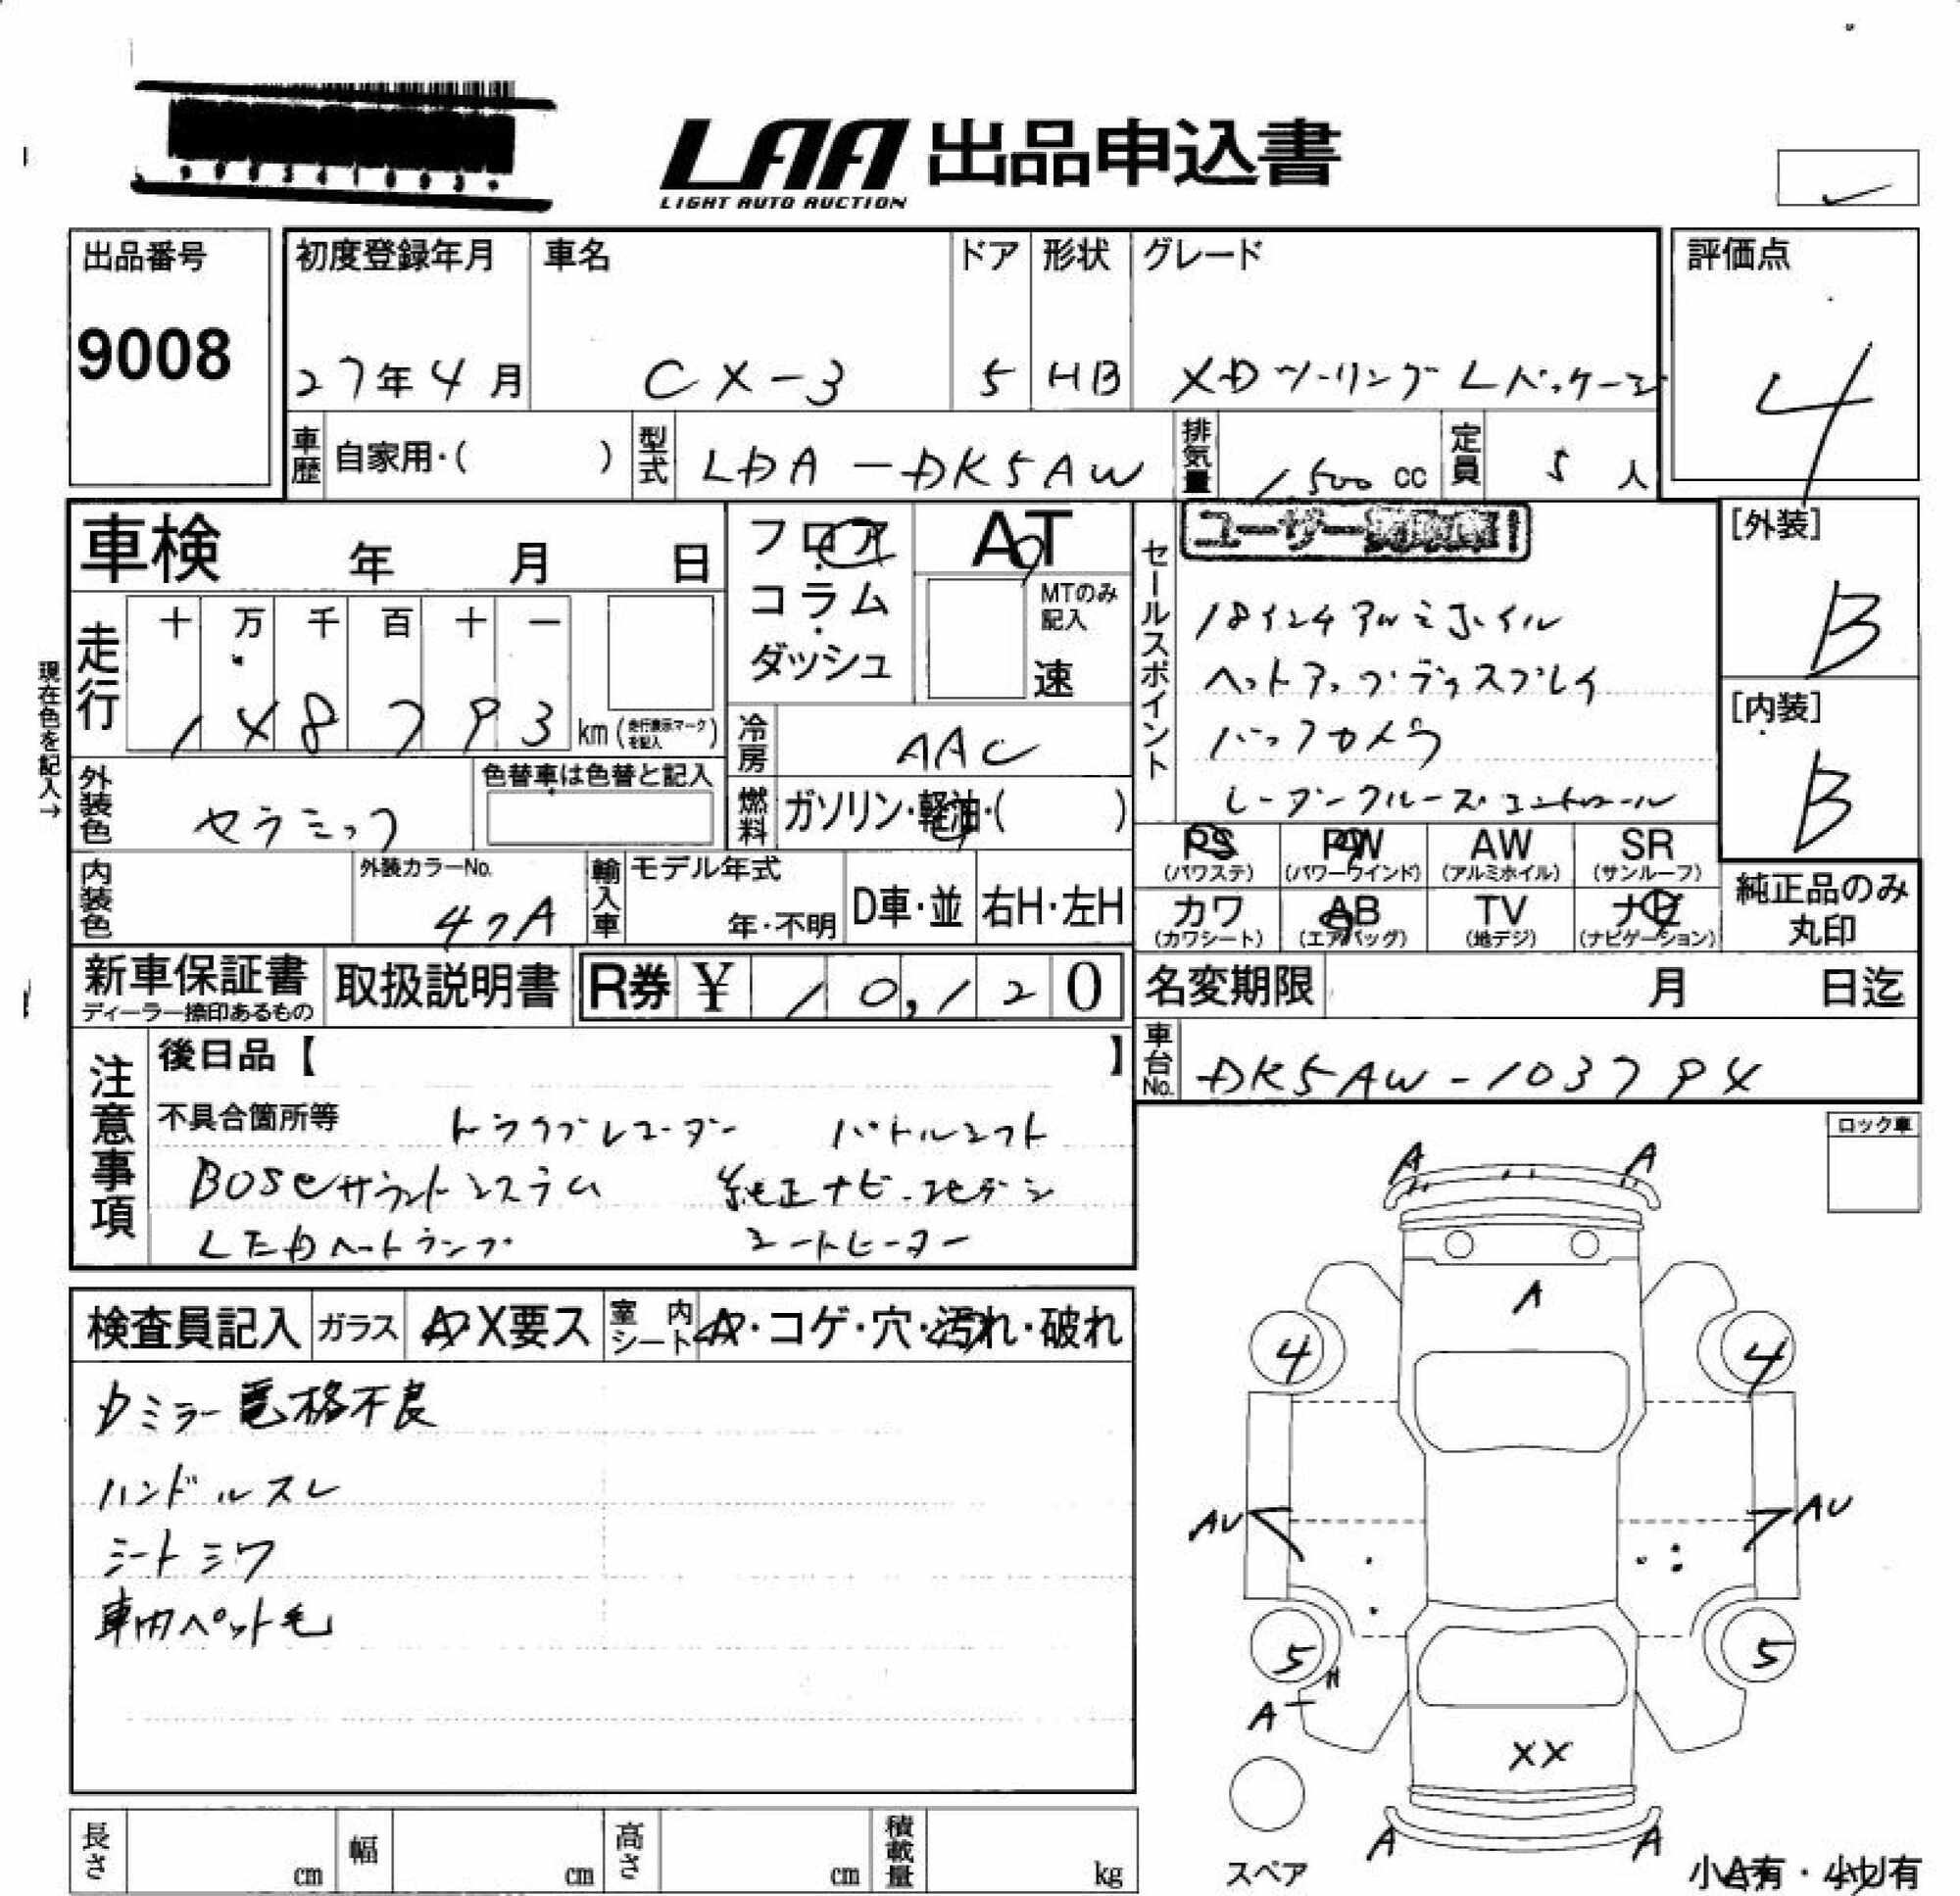 LAA 出品申込書
LIGHT AUTO AUCTION
出品番号
9008
初度登録年月 車名 ドア 形状 グレード
27年4月 CX-3 5 HB XDツーリング Lパッケージ
評価点
4
車歴 自家用・( ) 型式 LDA-DK5AW 排気量 1500 cc 定員 5 人
車検 年 月 日
フロア
コラム
ダッシュ
AT
MTのみ記入
速
走行 十 万 千 百 十 一
148793 km (走行表示マークを記入)
現在色を記入→
冷房 AAC
外装色 セラミック 色替車は色替と記入
燃料 ガソリン・軽油・( )
セールスポイント
ユーザー
18インチアルミホイル
ヘットアップディスプレイ
バックカメラ
レーダークルーズコントロール
[外装]
B
[内装]
B
PS PW AW SR
(パワステ) (パワーウインド) (アルミホイル) (サンルーフ)
カワ AB TV ナビ
(カワシート) (エアバッグ) (地デジ) (ナビゲーション)
純正品のみ
丸印
内装色 外装カラーNo. 47A
輸入車 モデル年式 年・不明 D車・並 右H・左H
新車保証書
ディーラー捺印あるもの
取扱説明書 R券 ¥ 10,120
名変期限 月 日迄
車台No. DK5AW-103794
注意事項
後日品【 】
不具合箇所等 ドラブレコーダー パドルシフト
BOSEサラウンドシステム 純正ナビ・地デジ
LEDヘットランプ シートヒーター
ロック車
検査員記入 ガラス A・X要ス 室内シート A・コゲ・穴・汚れ・破れ
カミラー電格不良
ハンドルスレ
シートシワ
車内ペット毛
A A
A
4 4
AU AU
5 5
A
XX
A A
スペア
小A有・小U有
長さ cm 幅 cm 高さ cm 積載量 kg